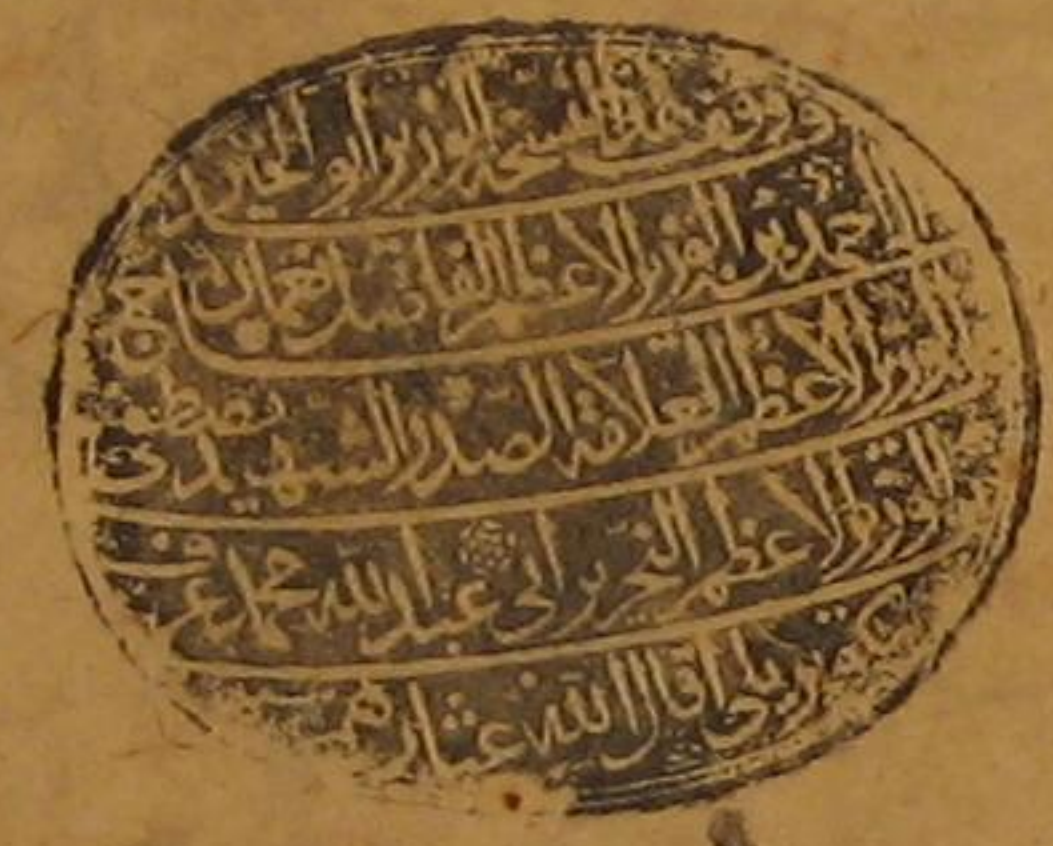 وقف هذه النسخة الوزير أبو الخير الحاج
أحمد بن الوزير الأعظم الفاضل نعمان بن
الوزير الأعظم العلامة الصدر الشهيد مصطفى
الوزير الأعظم النحرير أبي عبد الله محمد عرف
بكوپريلي أقال الله عثارهم